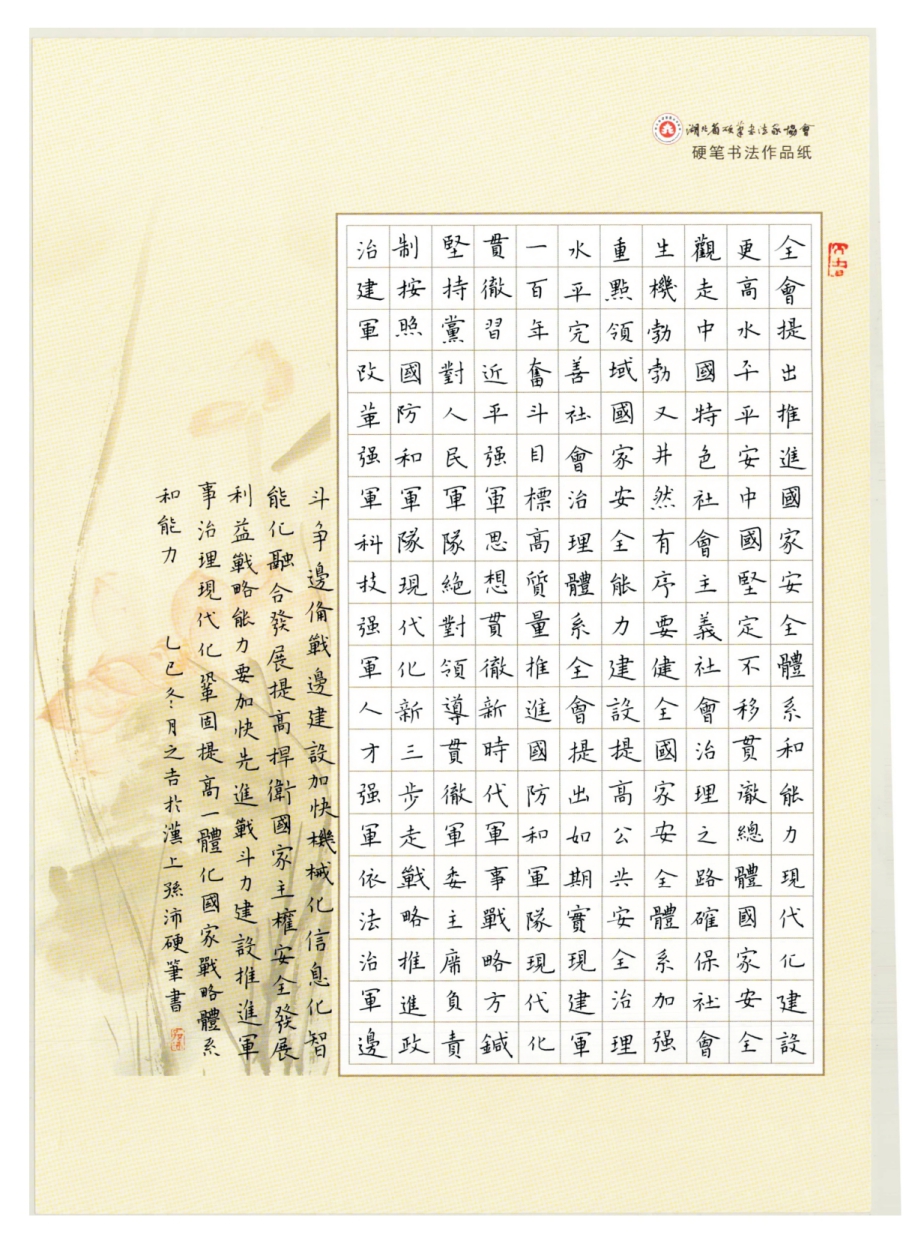 湖北省硬筆書法家協會
硬笔书法作品纸
全會提出推進國家安全體系和能力現代化建設
更高水平平安中國堅定不移貫澈總體國家安全
觀走中國特色社會主義社會治理之路確保社會
生機勃勃又井然有序要健全國家安全體系加强
重點領域國家安全能力建設提高公共安全治理
水平完善社會治理體系全會提出如期實現建軍
一百年奮斗目標高質量推進國防和軍隊現代化
貫徹習近平强軍思想貫徹新時代軍事戰略方鍼
堅持黨對人民軍隊絕對領導貫徹軍委主席負責
制按照國防和軍隊現代化新三步走戰略推進政
治建軍改革强軍科技强軍人才强軍依法治軍邊
斗争邊備戰邊建設加快機械化信息化智
能化融合發展提高捍衛國家主權安全發展
利益戰略能力要加快先進戰斗力建設推進軍
事治理現代化鞏固提高一體化國家戰略體系
和能力
乙巳冬月之吉於漢上孫沛硬筆書